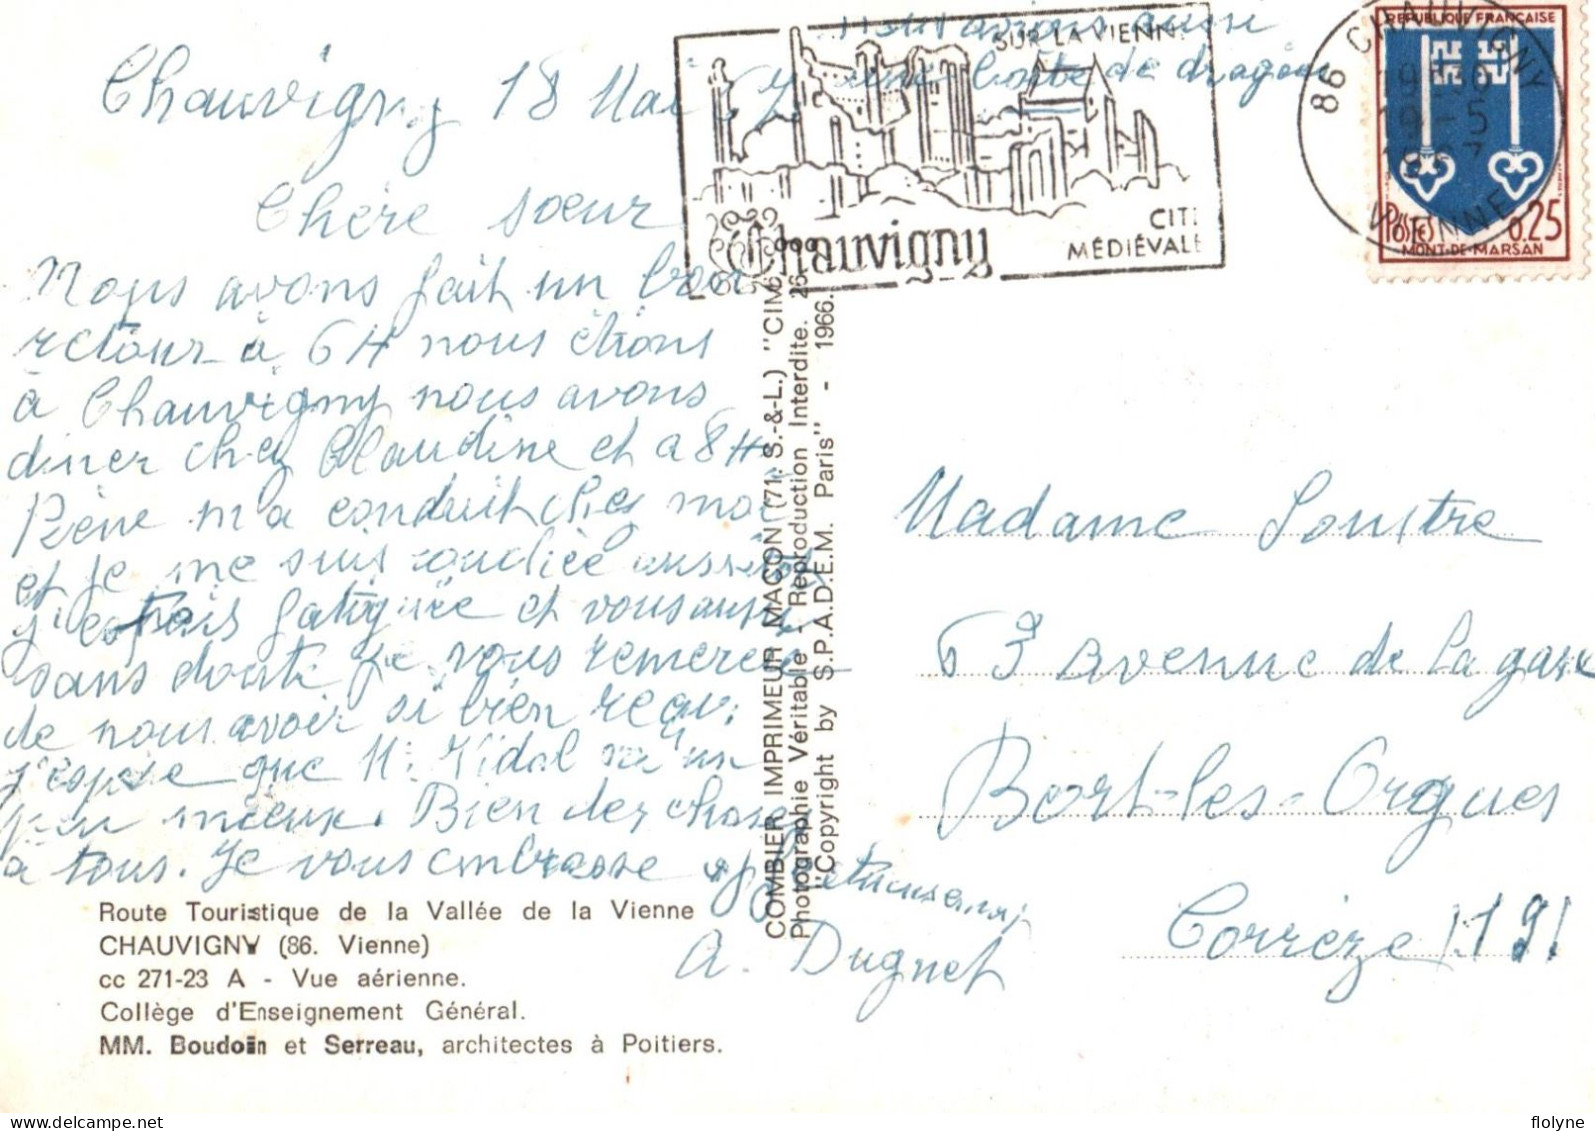 nous avions aussi
une boîte de dragées
Chauvigny 18 Mai 67
Chère sœur
Nous avons fait un bon
retour à 6 H nous étions
à Chauvigny nous avons
diner chez Claudine et a 8 H
m'a conduit chez moi
et je me suis couchée aussitôt
j'etais fatiguée et vous aussi
sans doute je vous remercie
de nous avoir si bien reçu.
j'espère que M. Vidal va un
peu mieux. Bien des choses
à tous. Je vous embrasse affectueusement
A. Dugnet
SUR LA VIENNE
Chauvigny
CITE
MÉDIÉVALE
86 CHAUVIGNY
VIENNE
19-5
1967
RÉPUBLIQUE FRANÇAISE
POSTES 0,25
MONT-DE-MARSAN
COMBIER IMPRIMEUR MACON (71. S.-&-L.) "CIM"
Photographie Véritable - Reproduction Interdite. 26
"Copyright by S.P.A.D.E.M. Paris" - 1966.
Madame Soustre
63 Avenue de la gare
Bort-les-Orgues
Corrèze (19)
Route Touristique de la Vallée de la Vienne
CHAUVIGNY (86. Vienne)
cc 271-23 A - Vue aérienne.
Collège d'Enseignement Général.
MM. Boudoin et Serreau, architectes à Poitiers.
flolyne